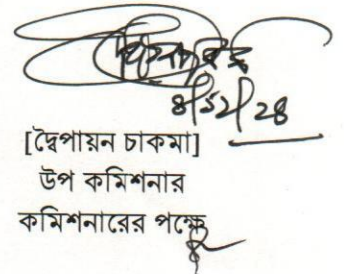 ৪/১২/২৪
[দ্বৈপায়ন চাকমা]
উপ কমিশনার
কমিশনারের পক্ষে